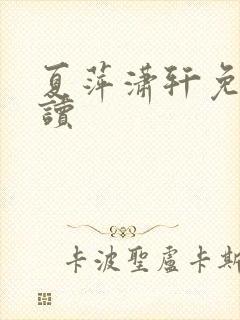 夏萍瀟軒免
讀
卡波聖盧卡斯